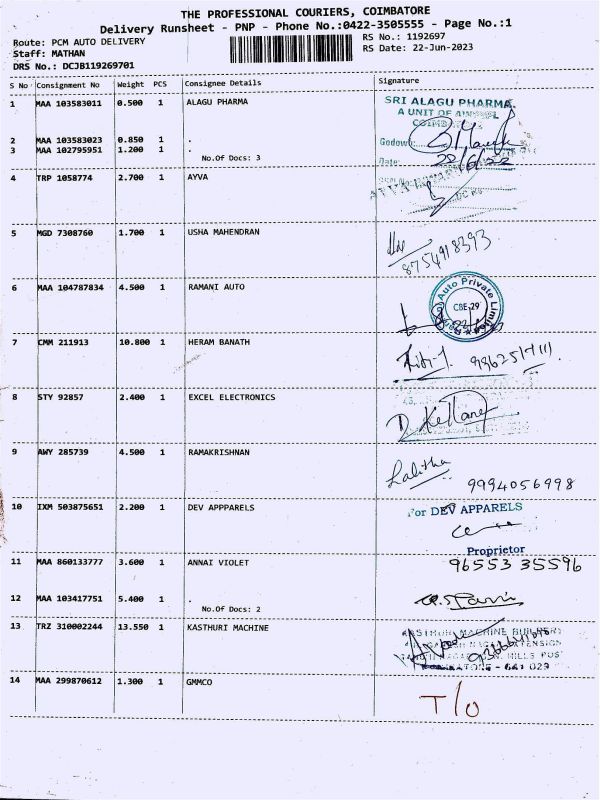 THE PROFESSIONAL COURIERS, COIMBATORE
Delivery Runsheet - PNP - Phone No.:0422-3505555 - Page No.:1
Route: PCM AUTO DELIVERY
RS No.: 1192697
Staff: MATHAN
RS Date: 22-Jun-2023
DRS No.: DCJB119269701
S No Consignment No Weight PCS Consignee Details Signature
1 MAA 103583011 0.500 1 ALAGU PHARMA
SRI ALAGU PHARMA
A UNIT OF
2 MAA 103583023 0.850 1 .
3 MAA 102795951 1.200 1 .
No.Of Docs: 3
Date:
4 TRP 1058774 2.700 1 AYVA
5 MGD 7308760 1.700 1 USHA MAHENDRAN
8754918393
6 MAA 104787834 4.500 1 RAMANI AUTO
Auto Private Limited
CBE-29
7 CMM 211913 10.800 1 HERAM BANATH
8 STY 92857 2.400 1 EXCEL ELECTRONICS
9 AWY 285739 4.500 1 RAMAKRISHNAN
Lalitha
9994056998
10 IXM 503875651 2.200 1 DEV APPPARELS
For DEV APPARELS
Proprietor
11 MAA 860133777 3.600 1 ANNAI VIOLET
96553 35596
12 MAA 103417751 5.400 1 .
No.Of Docs: 2
13 TRZ 310002244 13.550 1 KASTHURI MACHINE
14 MAA 299870612 1.300 1 GMMCO
T/O